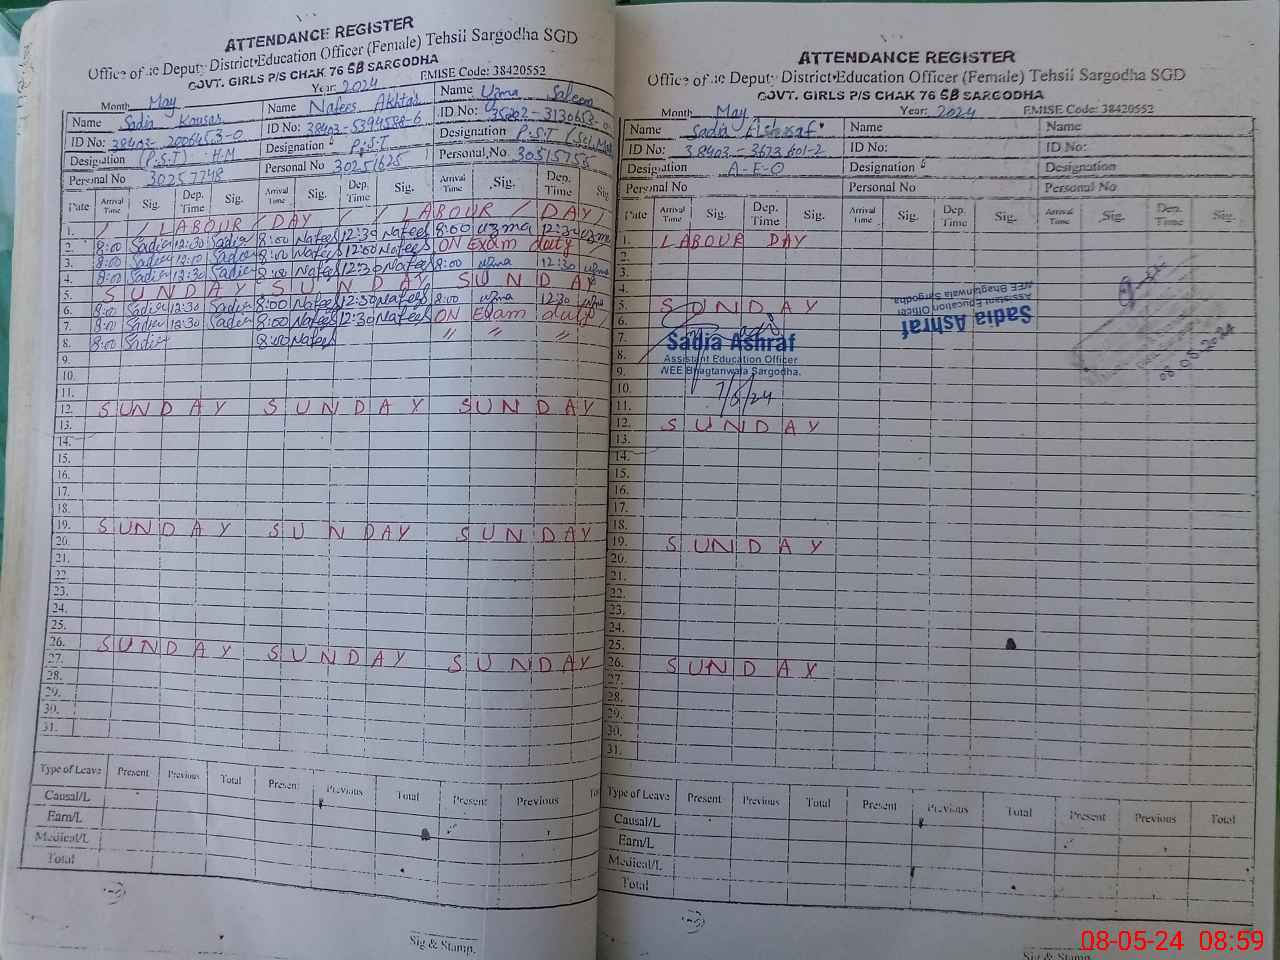 ATTENDANCE REGISTER
Office of Deputy District Education Officer (Female) Tehsil Sargodha SGD
GOVT. GIRLS P/S CHAK 76 SB SARGODHA
Month May Year: 2024 EMISE Code: 38420552
Name Sadia Kousar Name Nafees Akhtar Name Uzma Saleem
ID No: ID No: 38403-5394588-6 ID No:
Designation (P.S.T) H.M Designation P.S.T Designation P.S.T
Personal No 30257748 Personal No 30251625 Personal No
Date Arrival Time Sig. Dep. Time Sig. Arrival Time Sig. Dep. Time Sig. Arrival Time Sig. Dep. Time Sig.
1. / / LABOUR / DAY / / LABOUR / DAY /
2. 8:00 Sadia 12:30 Sadia 8:00 Nafees 12:30 Nafees 8:00 uzma 12:30 uzma
3. 8:00 Sadia Sadia 8:00 Nafees 12:00 Nafees ON Exam duty
4. 8:00 Sadia 12:30 Sadia 8:00 Nafees 12:30 Nafees 8:00 uzma 12:30 uzma
5. SUNDAY SUNDAY SUNDAY
6. 8:00 Sadia 12:30 Sadia 8:00 Nafees 12:30 Nafees 8:00 uzma 12:30 uzma
7. 8:00 Sadia 12:30 Sadia 8:00 Nafees 12:30 Nafees ON Exam duty
8. 8:00 Sadia 8:00 Nafees // //
9.
10.
11.
12. SUNDAY SUNDAY SUNDAY
13.
14.
15.
16.
17.
18.
19. SUNDAY SUNDAY SUNDAY
20.
21.
22.
23.
24.
25.
26. SUNDAY SUNDAY SUNDAY
27.
28.
29.
30.
31.
Type of Leave Present Previous Total Present Previous Total Present Previous
Causal/L
Earn/L
Medical/L
Total
Sig & Stamp.
ATTENDANCE REGISTER
Office of Deputy District Education Officer (Female) Tehsil Sargodha SGD
GOVT. GIRLS P/S CHAK 76 SB SARGODHA
Month May Year: 2024 EMISE Code: 38420552
Name Sadia Ashraf Name Name
ID No: ID No: ID No:
Designation A-E-O Designation Designation
Personal No Personal No Personal No
Date Arrival Time Sig. Dep. Time Sig. Arrival Time Sig. Dep. Time Sig. Arrival Time Sig. Dep. Time Sig.
1. LABOUR DAY
2.
3.
4.
5. SUNDAY
6.
7.
8.
9.
10.
11.
12. SUNDAY
13.
14.
15.
16.
17.
18.
19. SUNDAY
20.
21.
22.
23.
24.
25.
26. SUNDAY
27.
28.
29.
30.
31.
Sadia Ashraf
Assistant Education Officer
WEE Bhagtanwala Sargodha.
7/5/24
Sadia Ashraf
Assistant Education Officer
WEE Bhagtanwala Sargodha
08.05.2024
Type of Leave Present Previous Total Present Previous Total Present Previous Total
Causal/L
Earn/L
Medical/L
Total
Sig & Stamp
08-05-24 08:59